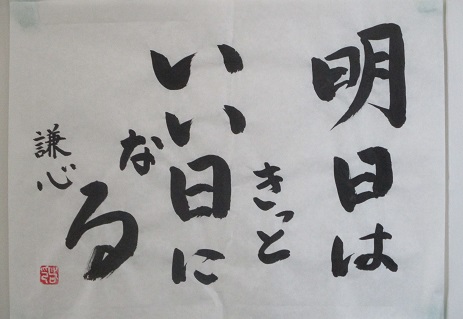 明日は
きっと
いい日に
なる
謙心